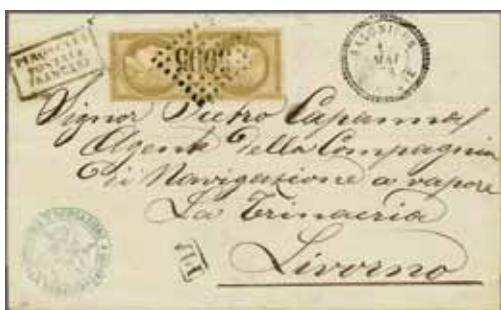 PIROSCAFI
POSTALI
FRANCESI
SALONIQUE
MAI
Signor Pietro
Agente della Compagnia
di Navigazione a vapore
La Trinacria
Livorno